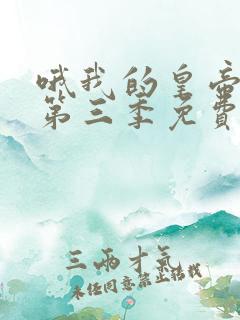 哦我的皇帝
第三季免费
三两才气
未经同意禁止结载